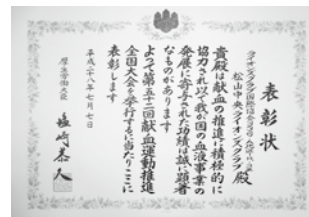 表彰状
ライオンズクラブ国際協会336-A地区
松山中央ライオンズクラブ殿
貴殿は献血の推進に積極的に
協力され以て我が国の血液事業の
発展に寄与された功績は誠に顕著
なものがあります
よって第五十二回献血運動推進
全国大会を挙行するに当たりここに
表彰します
平成二十八年七月七日
厚生労働大臣
塩崎恭久